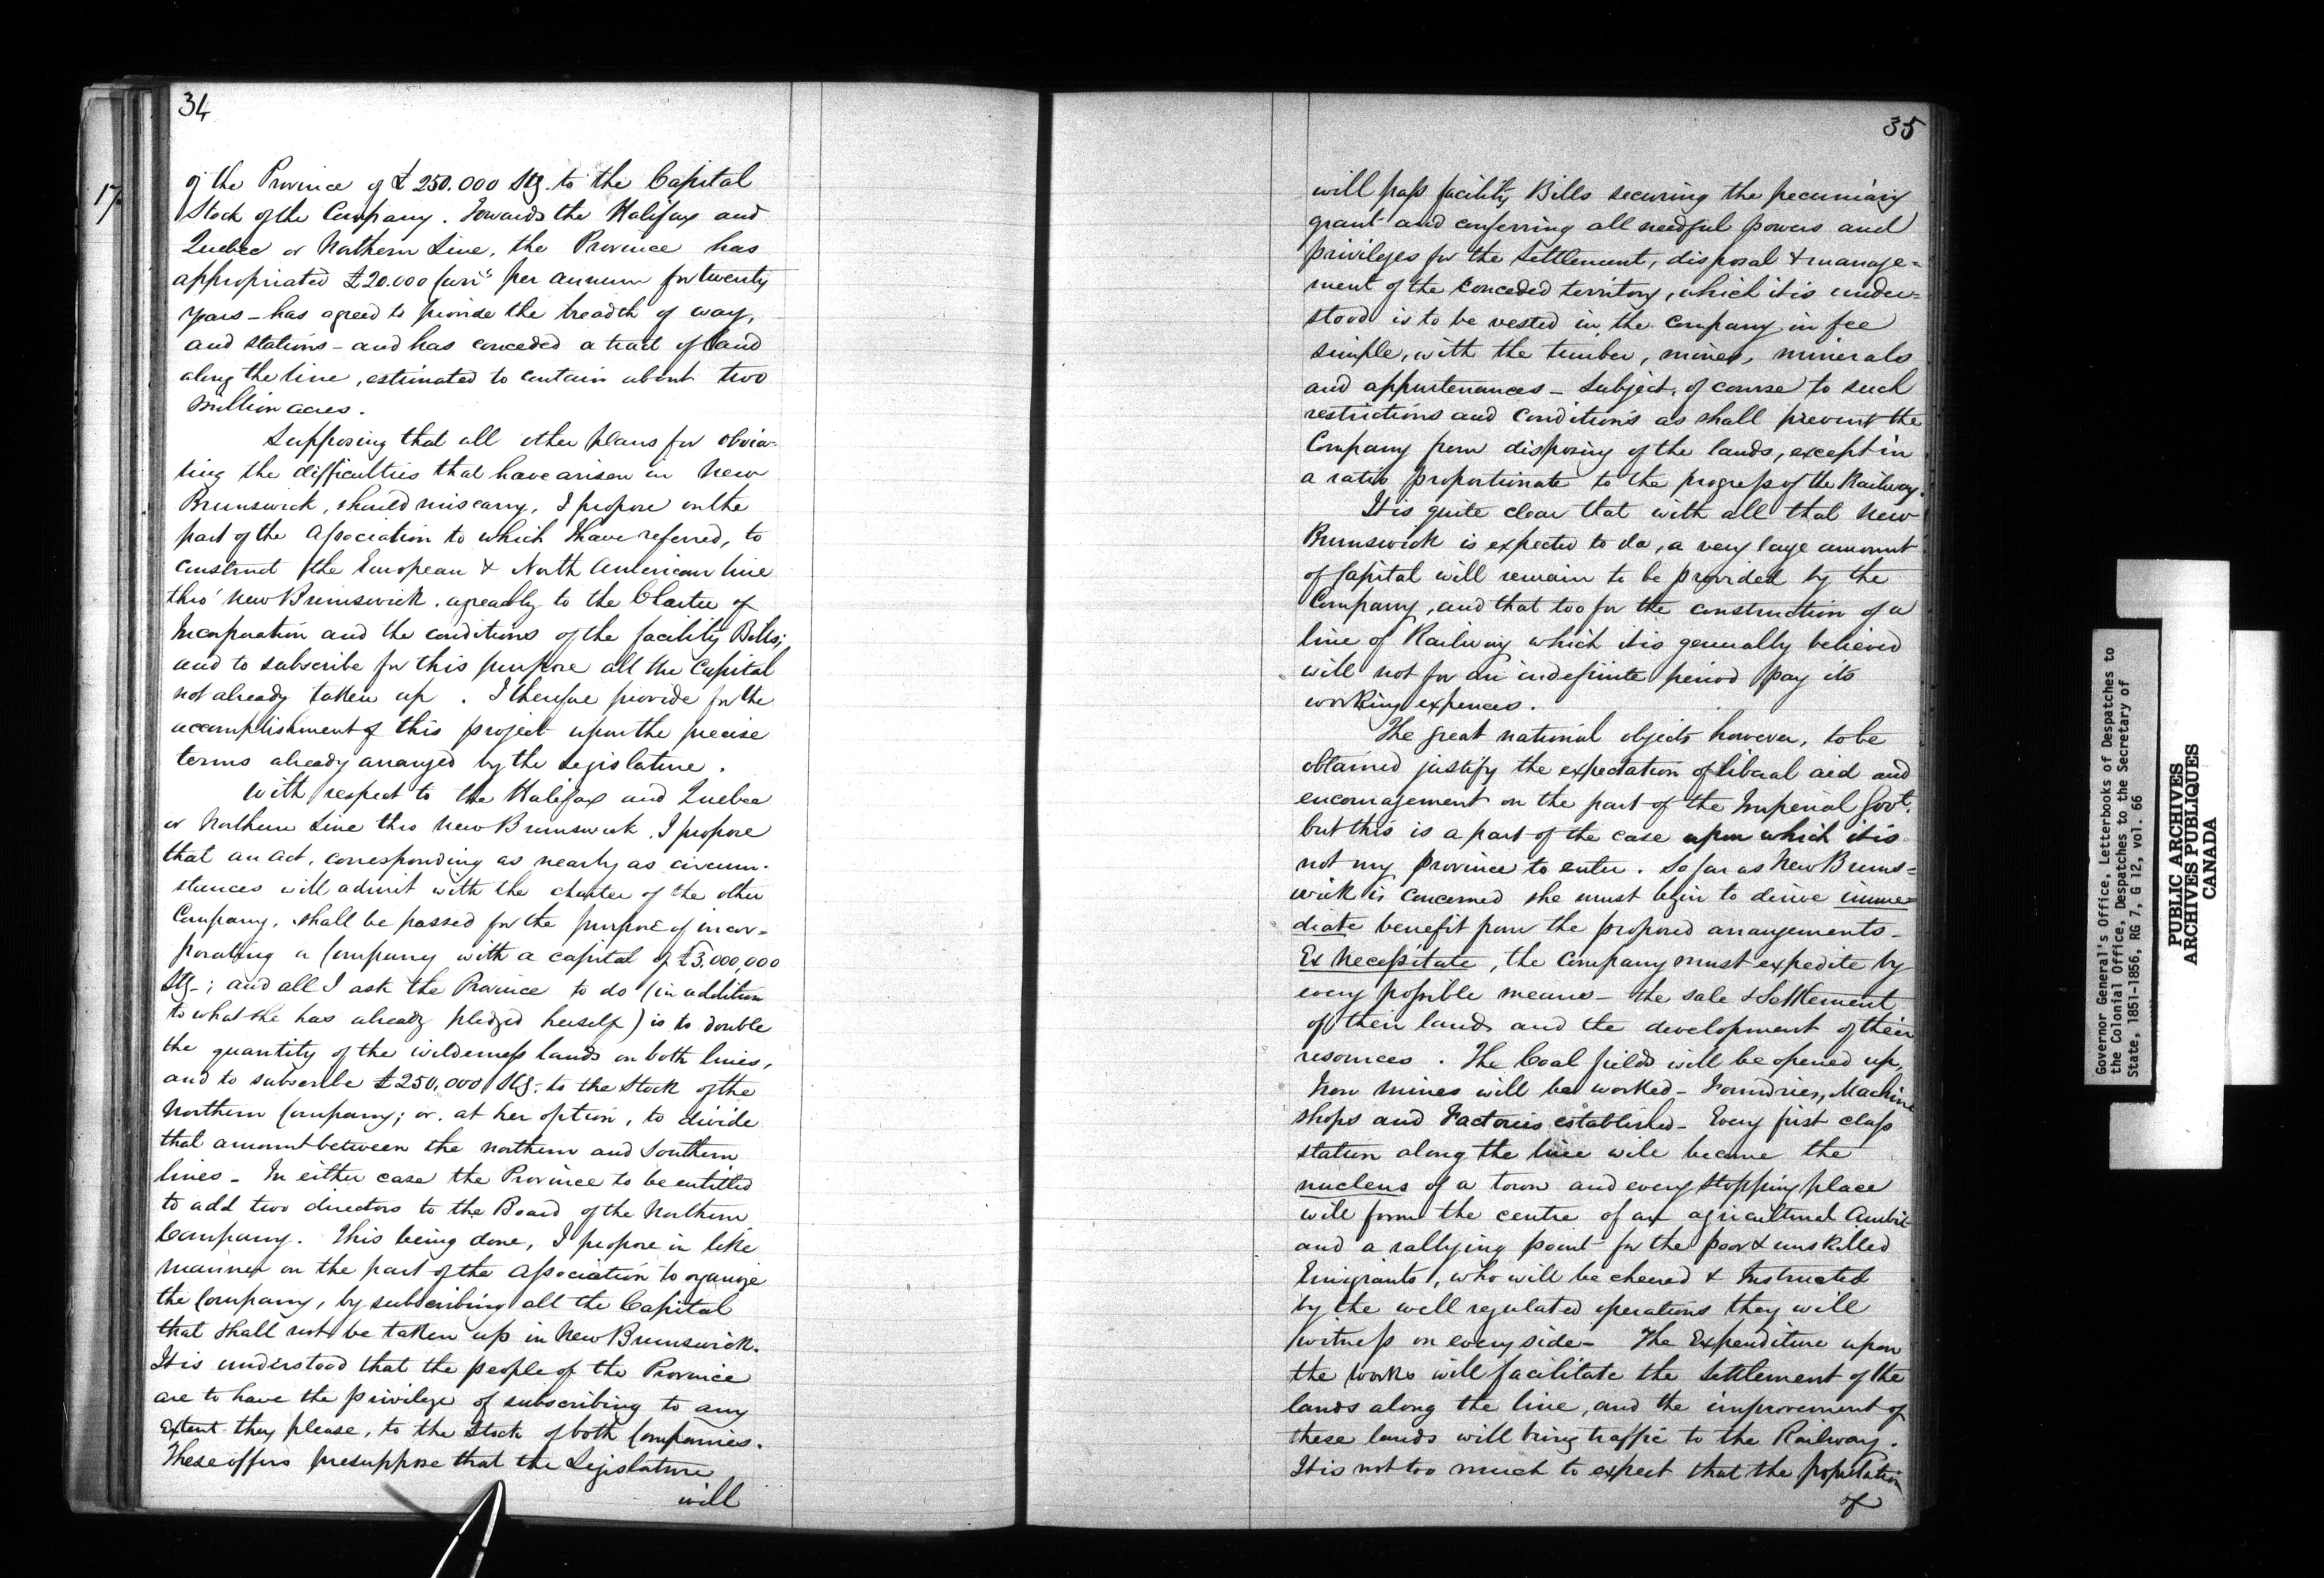 34
17
of the Province of £250.000 Stg. to the Capital
Stock of the Company. Towards the Halifax and
Quebec or Northern Line, the Province has
appropriated £20.000 per annum for twenty
years – has agreed to provide the breadth of way,
and stations – and has conceded a tract of land
along the line, estimated to contain about two
million acres.
Supposing that all other plans for obvia-
ting the difficulties that have arisen in New
Brunswick, should miscarry, I propose on the
part of the Association to which I have referred, to
construct the European & North American line
thro' New Brunswick. agreeably to the Charter of
Incorporation and the conditions of the facility Bills;
and to subscribe for this purpose all the Capital
not already taken up. I therefore provide for the
accomplishment of this project upon the precise
terms already arranged by the Legislature.
With respect to the Halifax and Quebec
or Northern Line thro New Brunswick, I propose
that an Act, corresponding as nearly as circum-
stances will admit with the charter of the other
Company, shall be passed for the purpose of incor-
porating a Company with a capital of £3,000,000
Stg-; and all I ask the Province to do (in addition
to what she has already pledged herself) is to double
the quantity of the wilderness lands on both lines,
and to subscribe £250,000 Stg. to the Stock of the
Northern Company; or. at her option, to divide
that amount between the northern and Southern
lines – In either case the Province to be entitled
to add two directors to the Board of the Northern
Company. This being done, I propose in like
manner on the part of the Association to organize
the Company, by subscribing all the Capital
that shall not be taken up in New Brunswick.
It is understood that the people of the Province
are to have the privilege of subscribing to any
Extent they please, to the Stock of both Companies.
These offers presuppose that the Legislature
will
35
will pass facility Bills securing the pecuniary
grant and conferring all needful powers and
privileges for the settlement, disposal & manage-
ment of the conceded territory, which it is under-
stood is to be vested in the Company in fee
simple, with the timber, mines, minerals
and appurtenances – Subject, of course to such
restrictions and conditions as shall prevent the
Company from disposing of the lands, except in
a ratio proportionate to the progress of the Railway.
It is quite clear that with all that New
Brunswick is expected to do, a very large amount
of Capital will remain to be provided by the
Company, and that too for the construction of a
line of Railway which it is generally believed
will not for an indefinite period pay its
working expences.
The great national objects however, to be
obtained justify the expectation of liberal aid and
encouragement on the part of the Imperial Govt.
but this is a part of the case upon which it is
not my province to enter. So far as New Bruns-
wick is concerned she must begin to derive imme-
diate benefit from the proposed arrangements –
Ex Necessitate, the Company must expedite by
every possible means – the sale & Settlement
of their lands and the development of their
resources. The Coal fields will be opened up,
Iron mines will be worked – Foundries, Machine
shops and Factories established – Every first class
station along the line will become the
nucleus of a town and every stopping place
will form the centre of an agricultural
and a rallying point for the poor & unskilled
Emigrants, who will be cheered & Instructed
by the well regulated operations they will
witness on every side – The Expenditure upon
the works will facilitate the Settlement of the
lands along the line, and the improvement of
these lands will bring traffic to the Railway.
It is not too much to expect that the population
of
Governor General's Office, Letterbooks of Despatches to
the Colonial Office, Despatches to the Secretary of
State, 1851-1856, RG 7, G 12, vol. 66
PUBLIC ARCHIVES
ARCHIVES PUBLIQUES
CANADA